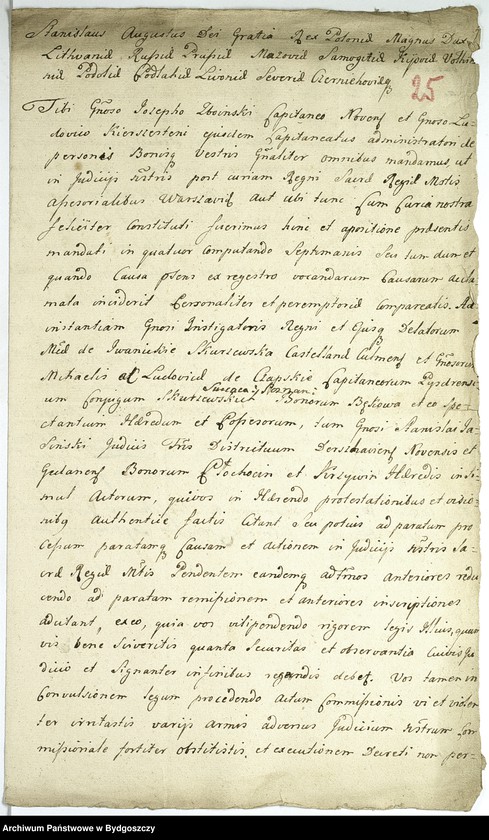 Stanislaus Augustus Dei Gratia Rex Poloniæ Magnus Dux
Lithvaniæ Russiæ Prussiæ Mazoviæ Samogitiæ Kijoviæ Volhi
niæ Podoliæ Podlahiæ Livoniæ Severiæ Czerniehoviæq
25
Tibi Gnoso Josepho Zboinski Capitaneo Novens et Gnoso Lu
dovico Kierszteni ejusdem Capitaneatus administratori de
personis Bonisq Vestris Gnaliter omnibus mandamus ut
in Judicijs Nstris post curiam Regni Sacræ Regiæ Mttis
assesorialibus Warszaviæ Aut ubi tunc Cum Curia nostra
feliciter Constituti fuerimus hinc et apositione præsentis
mandati in quatuor computando Septimanis Seu tum dum et
quando Causa præsens ex regestro vocandarum Causarum accla
mata inciderit Personaliter et peremptorie compareatis. Ad
instantiam Gnosi Instigatoris Regni et Ejusq Delatorum
de Iwanickie Skurzewska Castellanæ Culmens et Gnosorum
Mihaelis et Ludovicæ de Czapskie Capitaneorum
um Conjugum Skurzewskie Bonorum Bąkowa et eo Spe-
ctantium Hæredum et Possesorum, tum Gnosi Stanislai Ja
sinski Judicis Tris Districtuum Derszaviens Novensis et
Gedanens Bonorum Ciechocin et Krzywin Hæredis insi-
mul Actorum, quivos in Hærendo protestationibus et visio-
nibq Authentice factis Citant seu potius ad paratum pro
cessum paratamq Causam et actionem in Judicijs Nstris Sa-
cræ Regiæ Mttis Pendentem eandemq ad Tmos anteriores redu
cendo ad paratam remissionem et anteriores inscriptiones
adcitant, exeo, quia vos vilipendendo rigorem legis Illius, quam
vis bene Sciveritis quanta Securitas et observantia Cuivis Ju
dicio et Signanter in finibus regendis debet. Vos tamen in
Convulsionem legum procedendo Actum Commissionis vi et violen
ter irritastis varijs Armis adversus Judicium Nstrum Com
missoriale fortiter obstitistis, et executionem Decreti non per-
Archiwum Państwowe w Bydgoszczy